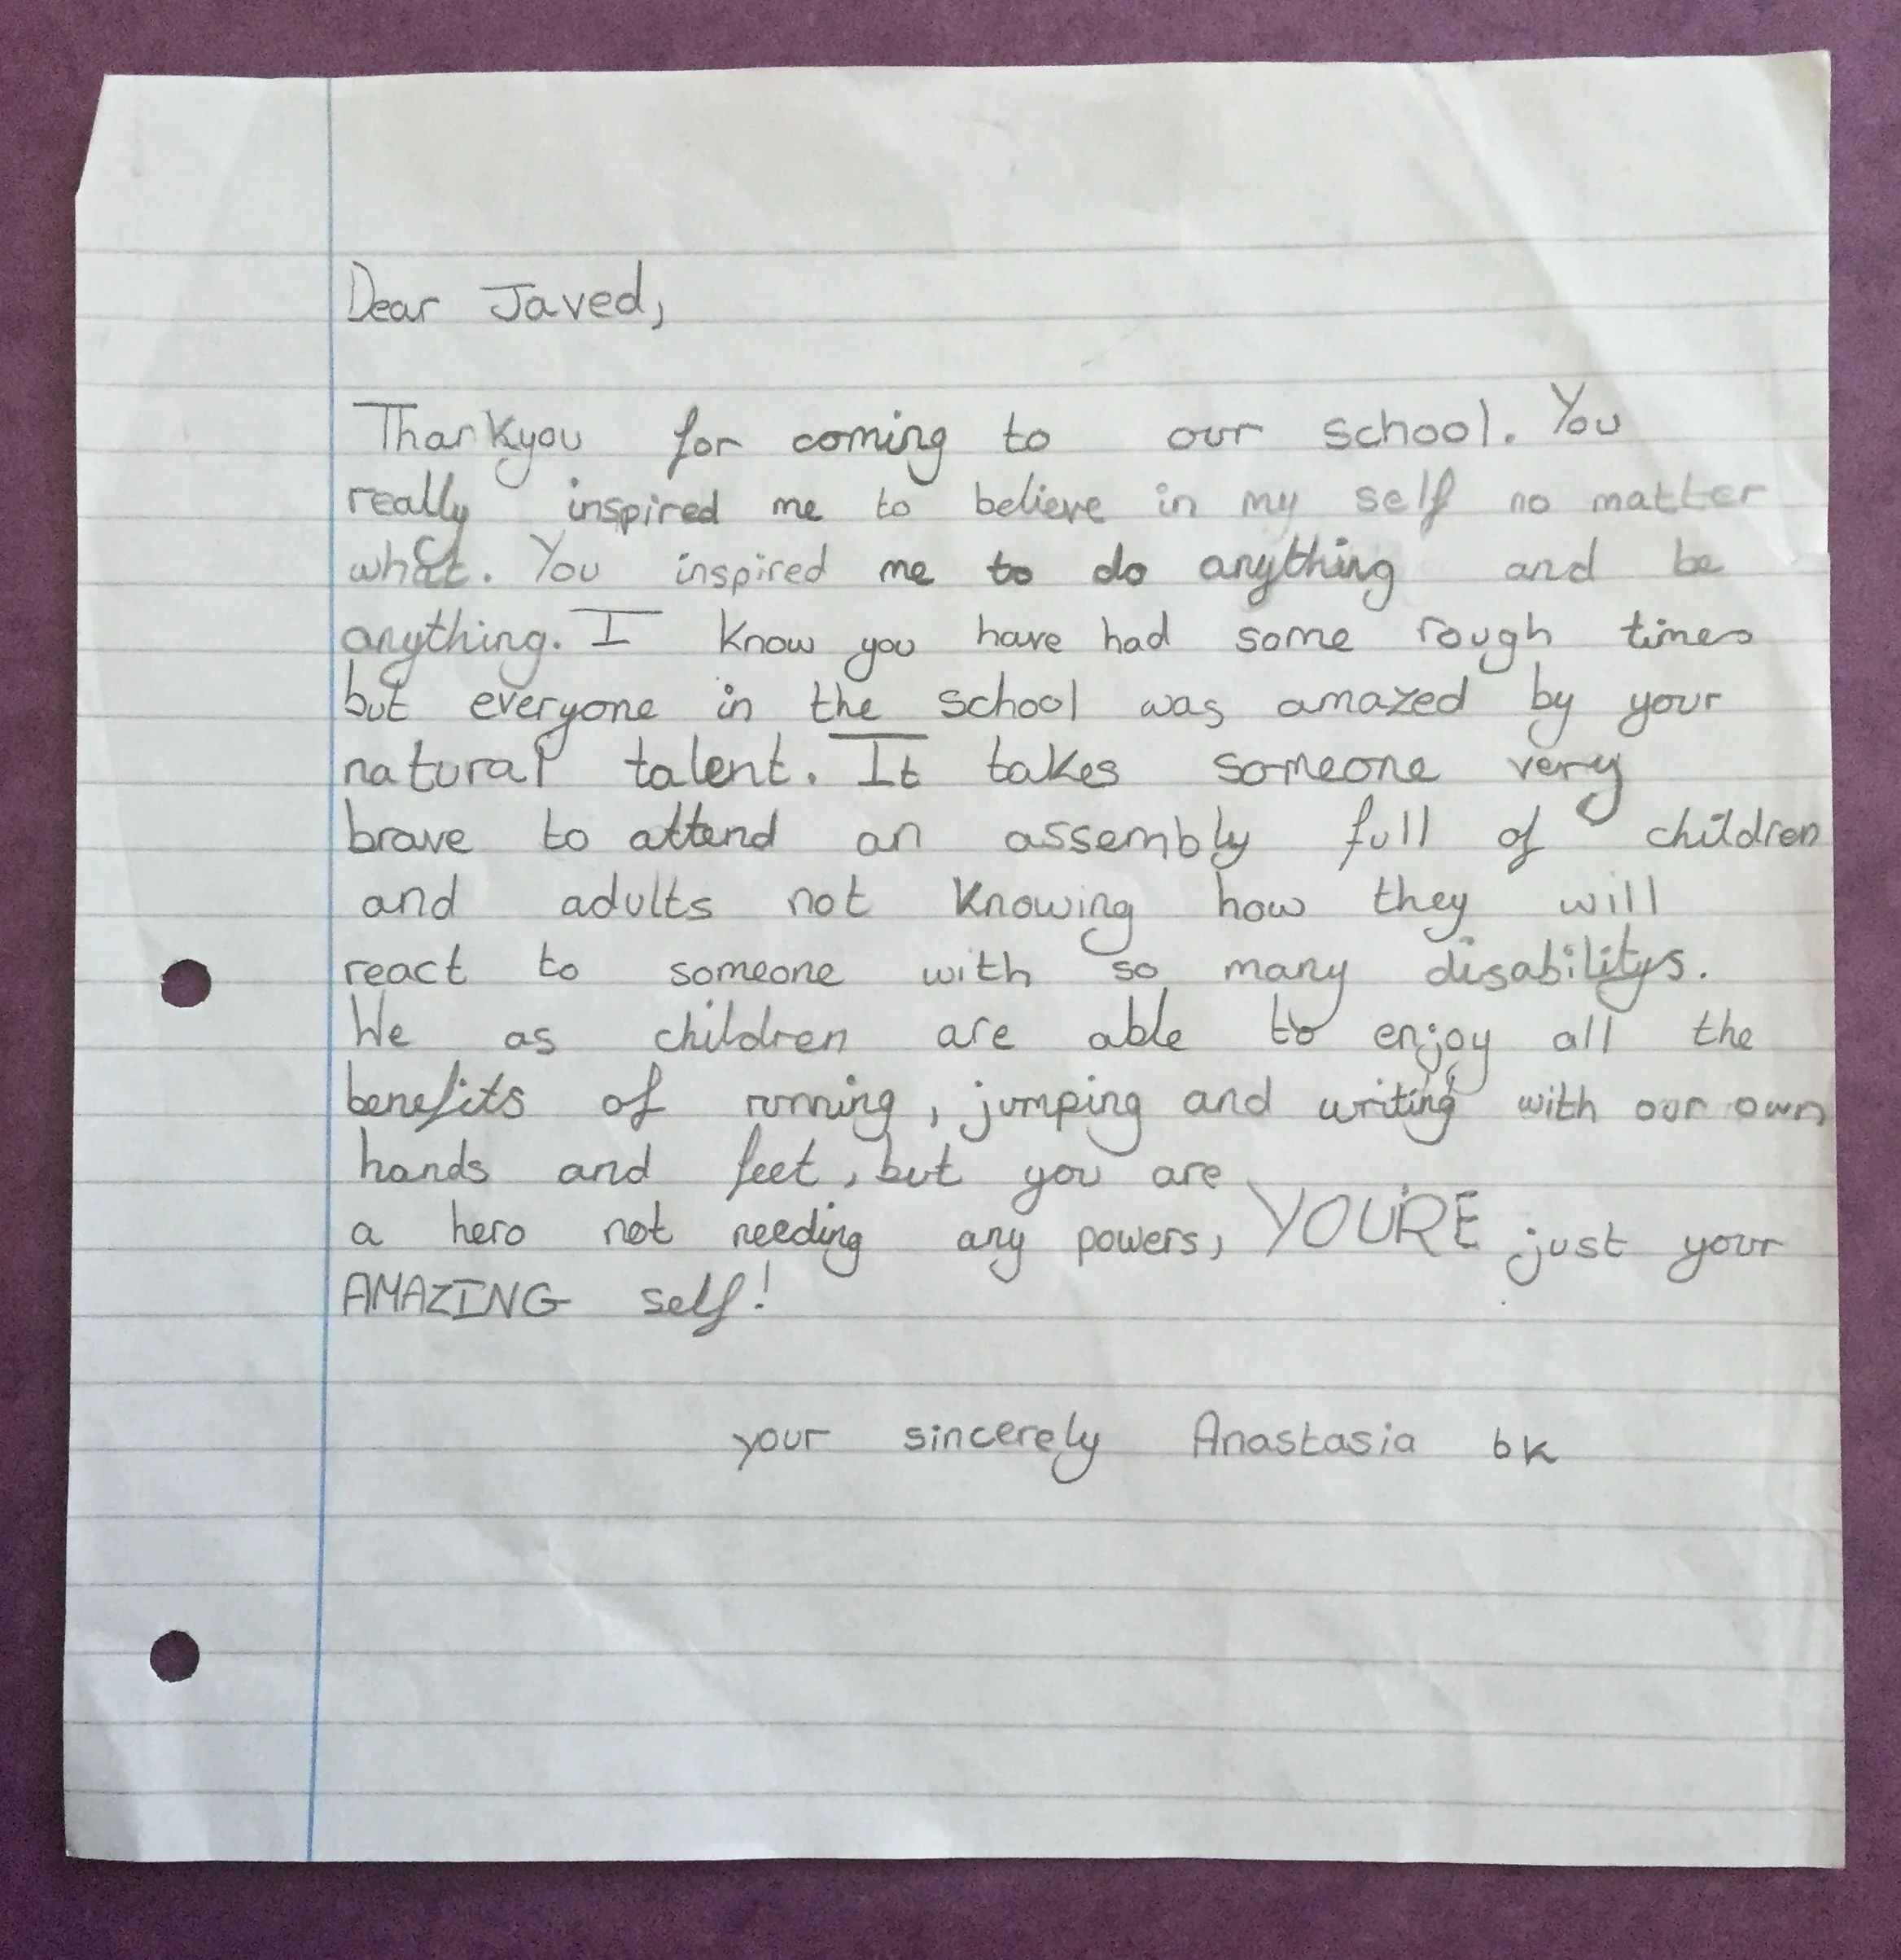 Dear Javed,
Thankyou for coming to our school. You
really inspired me to believe in my self no matter
what. You inspired me to do anything and be
anything. I know you have had some rough times
but everyone in the school was amazed by your
natural talent. It takes someone very
brave to attend an assembly full of children
and adults not knowing how they will
react to someone with so many disabilitys.
We as children are able to enjoy all the
benefits of running, jumping and writing with our own
hands and feet, but you are
a hero not needing any powers, YOU'RE just your
AMAZING self!
your sincerely Anastasia 6K